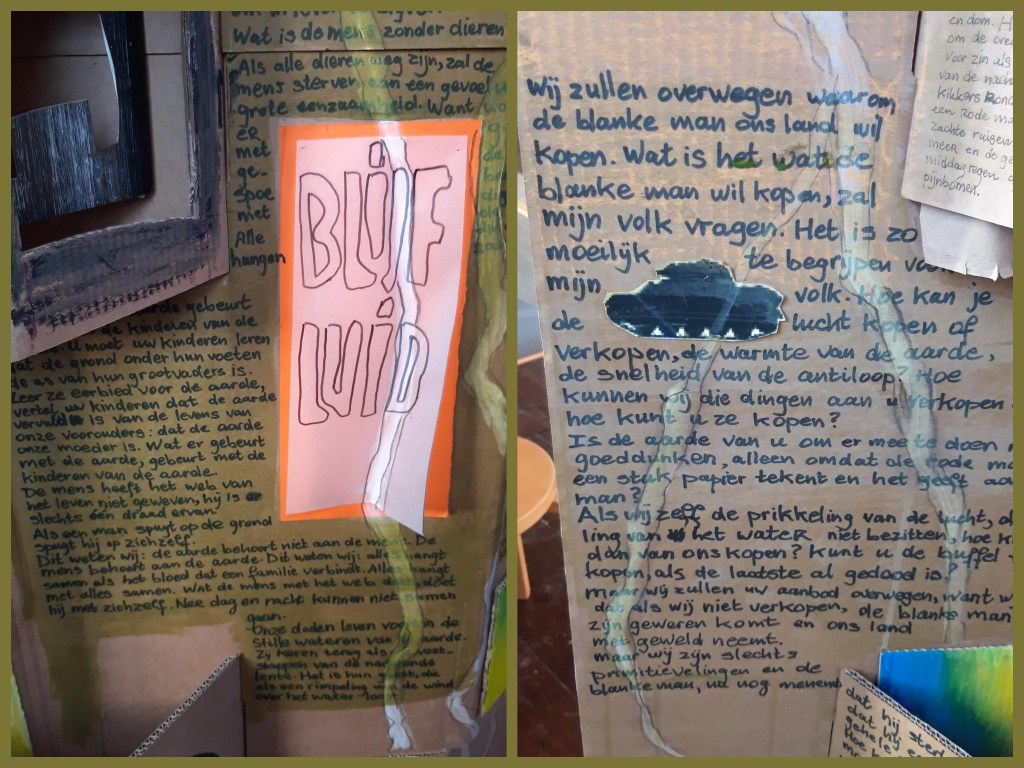 Wat is de mens zonder dieren
Als alle dieren weg zijn, zal de
mens sterven aan een gevoel
grote eenzaamheid. Want
ze
met
ge-
spoe
niet
Alle
hangen
BLIJF
LUID
aarde gebeurt
de kinderen van de
U moet uw kinderen leren
dat de grond onder hun voeten
de as van hun grootvaders is.
Leer ze eerbied voor de aarde,
vertel uw kinderen dat de aarde
vervuld is van de levens van
onze voorouders: dat de aarde
onze moeder is. Wat er gebeurt
met de aarde, gebeurt met de
kinderen van de aarde.
De mens heeft het web van
het leven niet geweven, hij is
slechts één draad ervan.
Als een man spuyt op de grond
spugt hij op zichzelf.
Dit weten wij: de aarde behoort niet aan de mens. De
mens behoort aan de aarde. Dit weten wij: alles hangt
samen als het bloed dat een familie verbindt. Alles hangt
met alles samen. Wat de mens met het web doet, doet
hij met zichzelf. Nee dag en nacht kunnen niet samen
gaan.
Onze doden leven voort in de
stille wateren van de aarde.
Zij keren terug als de voet-
stappen van de naderende
lente. Het is hun geest, die
als een rimpeling van de wind
over het water
Wij zullen overwegen waarom
de blanke man ons land wil
kopen. Wat is het wat de
blanke man wil kopen, zal
mijn volk vragen. Het is zo
moeilijk te begrijpen voor
mijn volk. Hoe kan je
de lucht kopen of
verkopen, de warmte van de aarde,
de snelheid van de antiloop? Hoe
kunnen wij die dingen aan u verkopen
hoe kunt u ze kopen?
Is de aarde van u om er mee te doen
goeddunken, alleen omdat de rode
een stuk papier tekent en het geeft aan
man?
Als wij zelf de prikkeling van de lucht,
ling van het water niet bezitten, hoe
dan van ons kopen? Kunt u de buffel
kopen, als de laatste al gedood is?
maar wij zullen uw aanbod overwegen, want
dat als wij niet verkopen, de blanke man
zijn geweren komt en ons land
met geweld neemt.
maar wij zijn slechts
primitievelingen en de
blanke man, nu nog menend
en dom.
om de
voor zin als
van de
kikkers Rond
een rode
zachte
meer en de
middagregen
pijnbomen.
dat hij
dat hij
gehele
Hoe